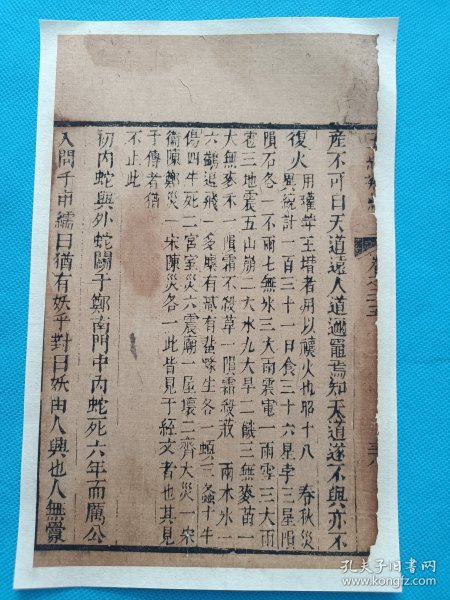 産不可曰天道遠人道邇竈焉知天道遂不與亦不
復火 用瓘斝玉瓚者用以禳火也昭十八 春秋災
異統計一百三十一日食三十六星孛三星隕
隕石各一不雨七無氷三大雨震電一雨雪三大雨
雹三地震五山崩二大水九大旱二饑三無麥苗一
大無麥禾一隕霜不殺草一隕霜殺菽一雨木氷一
六鷁退飛一多麋有蜮有蜚蝝生各一螟三螽十牛
傷四牛死二宮室災六震廟一屋壞二齊大災一宋
衛陳鄭災一宋陳災各一此皆見于經文者也其見
于傳者猶
不止此
初内蛇與外蛇鬭于鄭南門中内蛇死六年而厲公
入問于申繻曰猶有妖乎對曰妖由人興也人無釁
孔夫子旧书网
www.kongfz.com